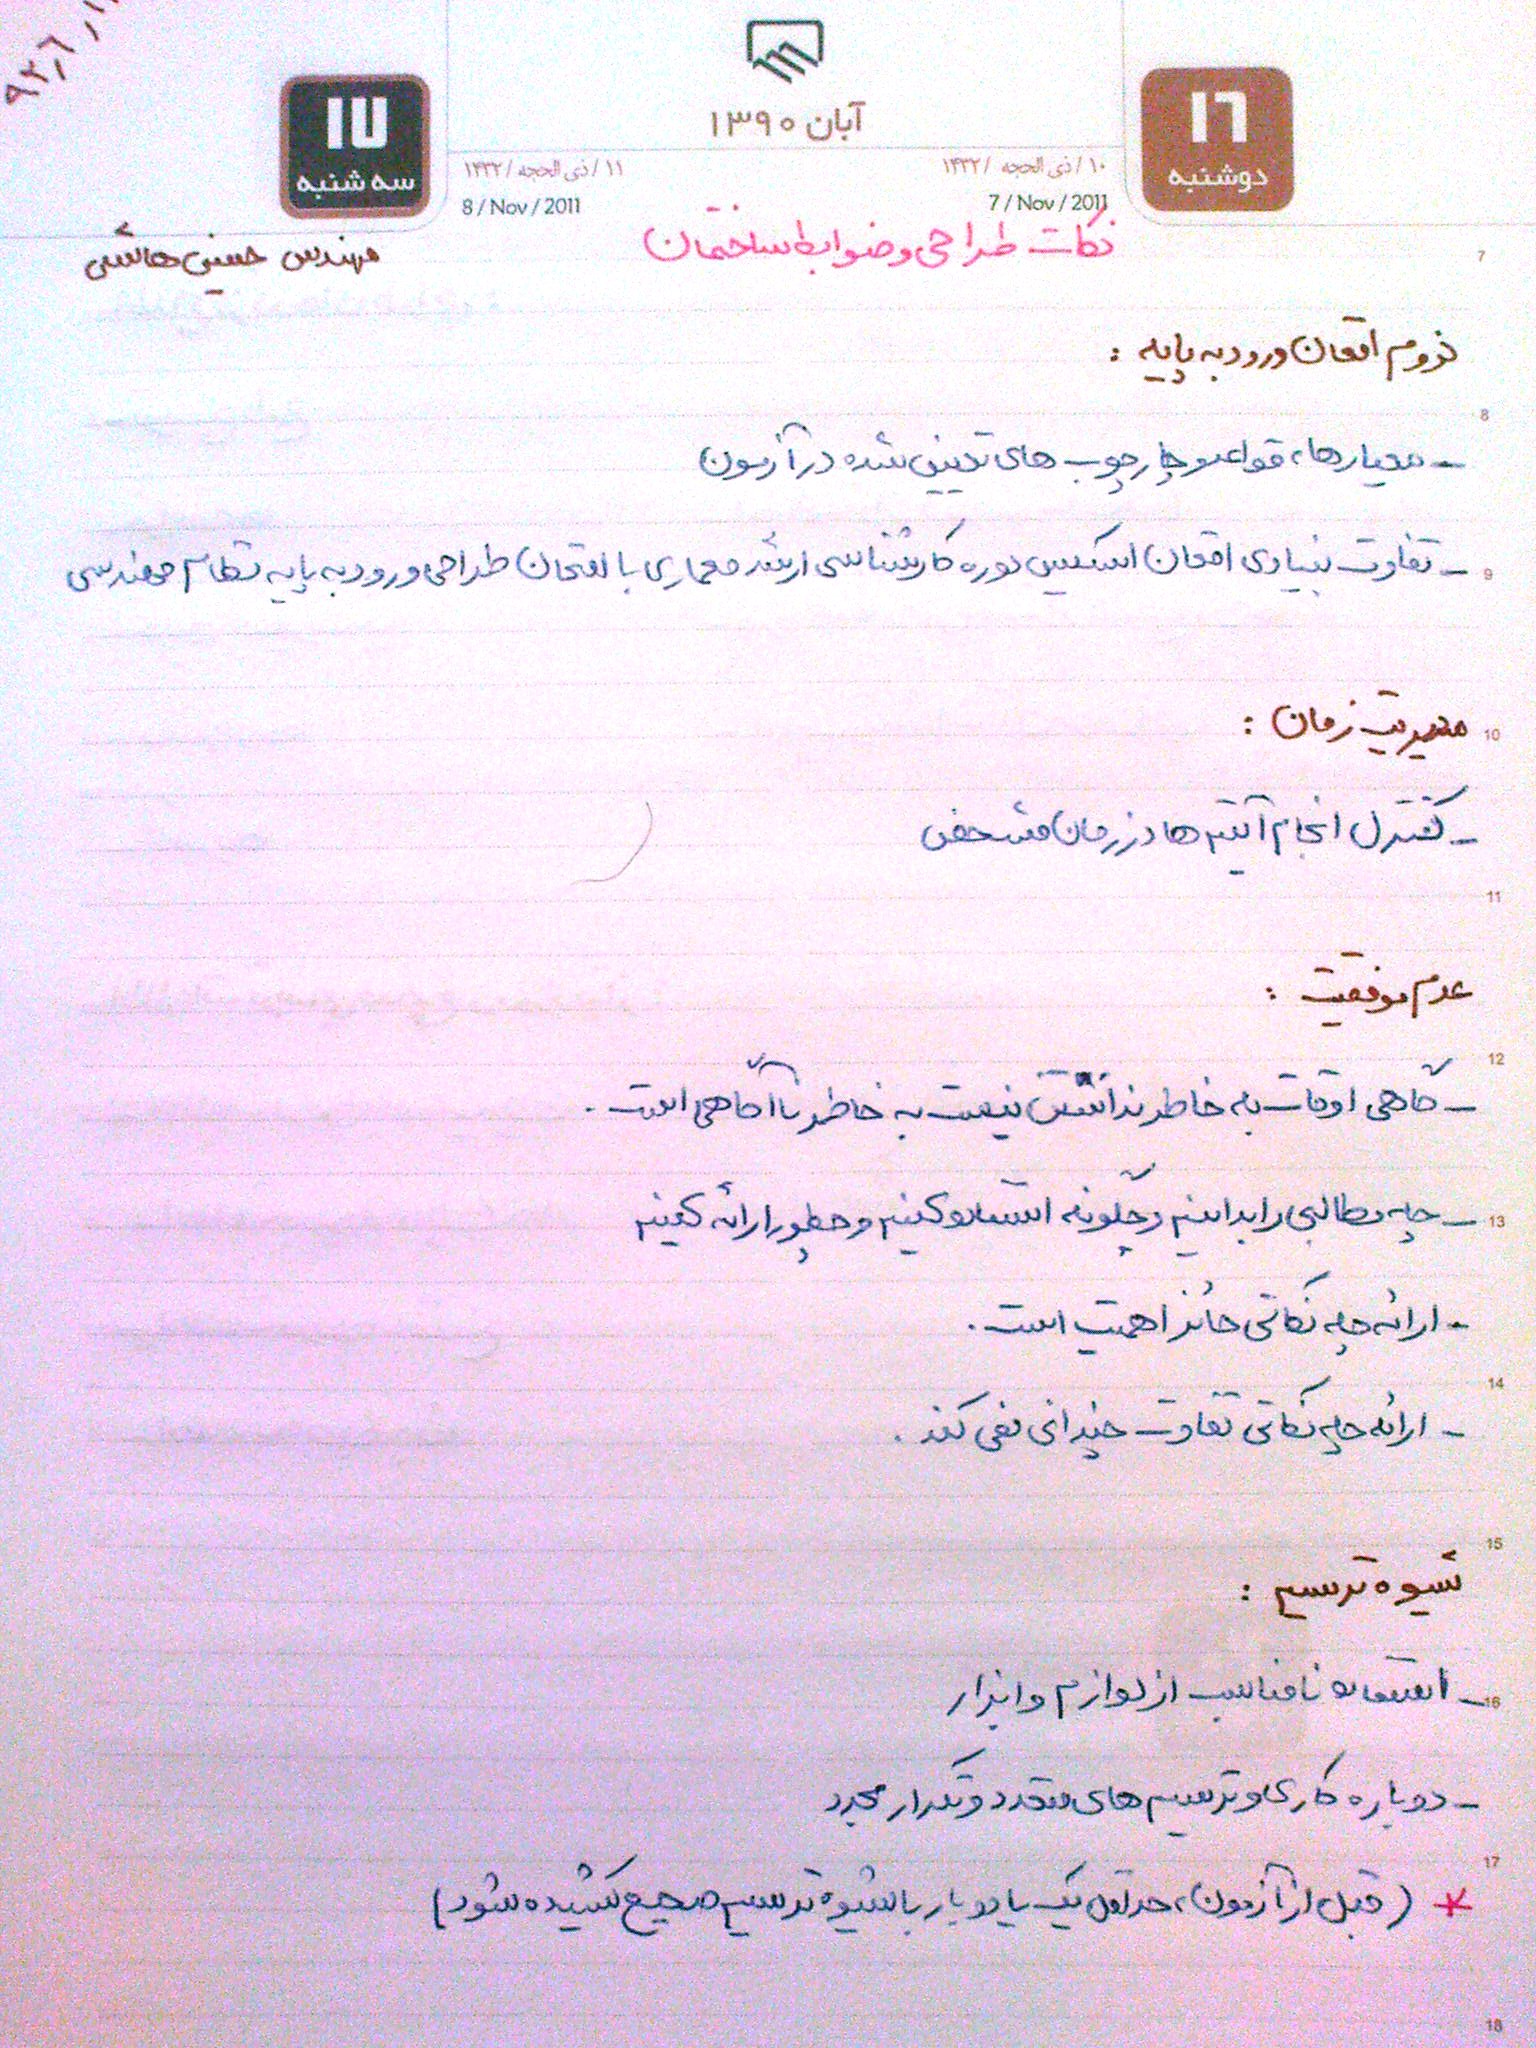 ۹۲٫۶٫
۱۶
دوشنبه
آبان ۱۳۹۰
۱۷
سه شنبه
۱۰ / ذی الحجه / ۱۴۳۲
7 / Nov / 2011
۱۱ / ذی الحجه / ۱۴۳۲
8 / Nov / 2011
نکات طراحی و ضوابط ساختمان
مهندس حسینی هاشمی
7
لزوم امتحان ورود به پایه :
8
- معیارها، قواعد و چارچوب های تعیین شده در آزمون
9
- تفاوت بنیادی امتحان اسکیس دوره کارشناسی ارشد معماری با امتحان طراحی ورود به پایه نظام مهندسی
10
مدیریت زمان :
- کنترل انجام آیتم ها در زمان مشخص
11
عدم موفقیت :
12
- گاهی اوقات به خاطر ندانستن نیست به خاطر ناآگاهی است .
13
- چه مطالبی را بدانیم و چگونه استفاده کنیم و چطور ارائه کنیم
- ارائه چه نکاتی حائز اهمیت است .
14
- ارائه چه نکاتی تفاوت چندانی نمی کند .
15
شیوه ترسیم :
16
- استفاده نامناسب از لوازم و ابزار
- دوباره کاری و ترسیم های متعدد و تکرار مجدد
17
* ( قبل از آزمون، حداقل یک یا دو بار با شیوه ترسیم صحیح کشیده شود )
18